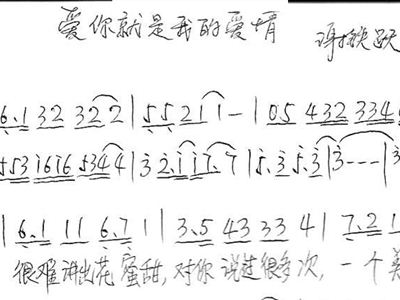 爱你就是我的爱情
6.1 32 322 | 55 211 — | 05 432 334
553 1616 5344 | 3 2.1 17.7 | 5.3 5.3 | 3 - - - | 3
| 6.1 11 6.7 1 | 3.5 43 33 4 | 7.2 1
很难讲出花蜜甜,对你说过很多次,一个美